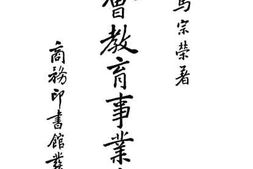 馬宗榮著
會教育事業
商務印書館